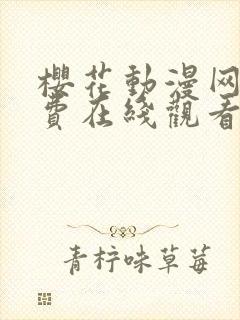 櫻花動漫网
費在綫觀看
青柠味草莓